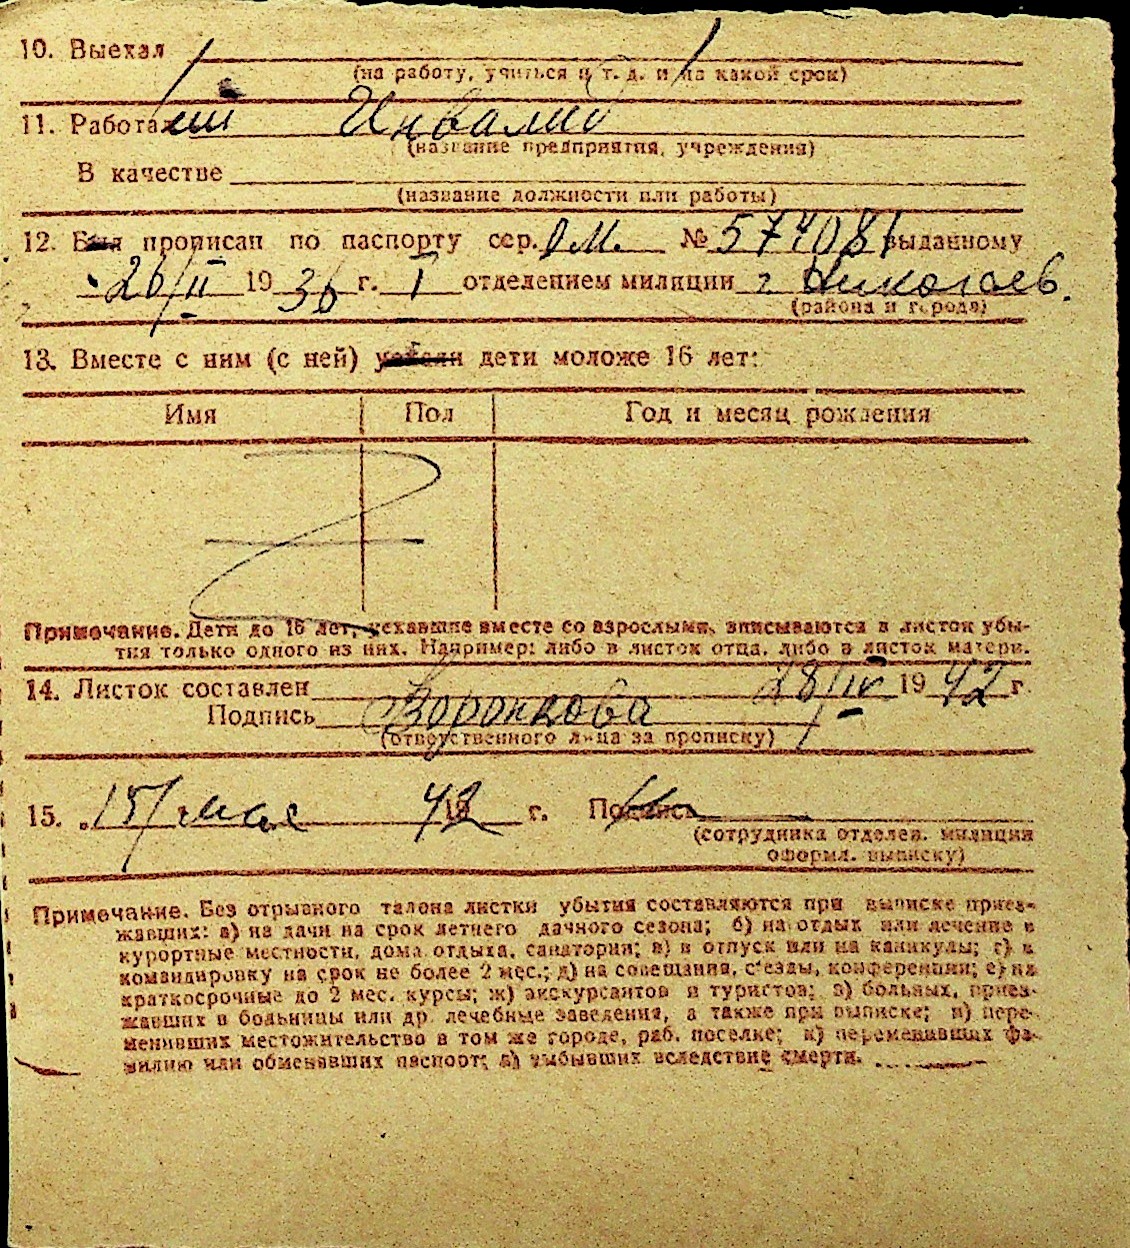 10. Выехал
(на работу, учиться и т. д. и на какой срок)
11. Работал Инвалид
(название предприятия, учреждения)
В качестве
(название должности или работы)
12. Был прописан по паспорту сер. № 577081 выданному
26/II 1936 г. I отделением милиции г. Николаев.
(района и города)
13. Вместе с ним (с ней) уехали дети моложе 16 лет:
Имя Пол Год и месяц рождения
Z
Примечание. Дети до 16 лет, уехавшие вместе со взрослыми, вписываются в листок убы-
тия только одного из них. Например: либо в листок отца, либо в листок матери.
14. Листок составлен 28/IV 1942 г.
Подпись Воронкова
(ответственного лица за прописку)
15. 15/ мая 1942 г. Подпись
(сотрудника отделен. милиции
оформл. выписку)
Примечание. Без отрывного талона листки убытия составляются при выписке приез-
жавших: а) на дачи на срок летнего дачного сезона; б) на отдых или лечение в
курортные местности, дома отдыха, санатории; в) в отпуск или на каникулы; г) в
командировку на срок не более 2 мес.; д) на совещания, съезды, конференции; е) на
краткосрочные до 2 мес. курсы; ж) экскурсантов и туристов; з) больных, приез-
жавших в больницы или др. лечебные заведения, а также при выписке; и) пере-
менивших местожительство в том же городе, раб. поселке; к) переменивших фа-
милию или обменявших паспорт; л) выбывших вследствие смерти.